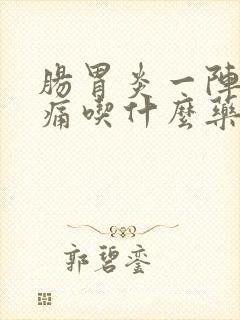 腸胃炎一陣
痛喫什麼藥
郭碧鑾